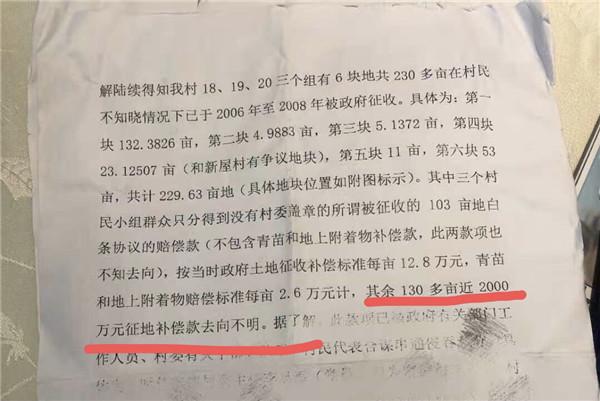 解陆续得知我村 18、19、20 三个组有 6 块地共 230 多亩在村民
不知晓情况下已于 2006 年至 2008 年被政府征收。具体为：第一
块 132.3826 亩，第二块 4.9883 亩，第三块 5.1372 亩，第四块
23.12507 亩（和新屋村有争议地块），第五块 11 亩，第六块 53
亩，共计 229.63 亩地（具体地块位置如附图标示）。其中三个村
民小组群众只分得到没有村委盖章的所谓被征收的 103 亩地白
条协议的赔偿款（不包含青苗和地上附着物补偿款，此两款项也
不知去向），按当时政府土地征收补偿标准每亩 12.8 万元，青苗
和地上附着物赔偿标准每亩 2.6 万元计，其余 130 多亩近 2000
万元征地补偿款去向不明。据了解，此款项已被政府有关部门工
作人员、村委有关干部 村民代表合谋串通侵吞